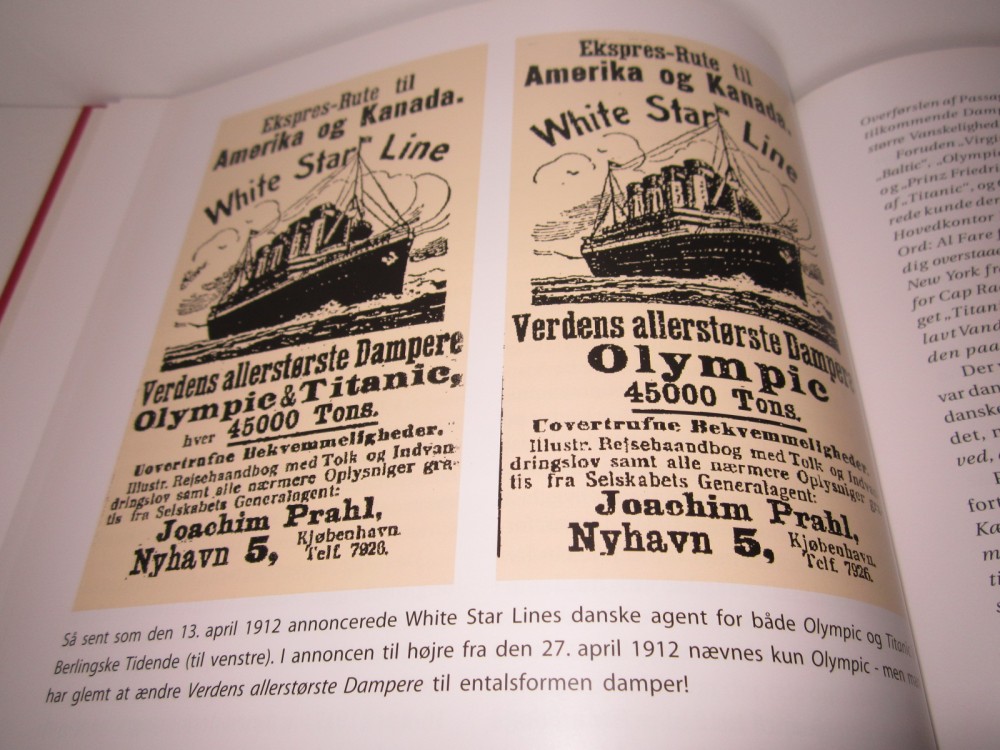 Ekspres-Rute til
Amerika og Kanada.
White Star Line
Verdens allerstørste Dampere
Olympic & Titanic,
hver 45000 Tons.
Uovertrufne Bekvemmeligheder.
Illustr. Rejsehaandbog med Tolk og Indvan-
dringslov samt alle nærmere Oplysniger gra-
tis fra Selskabets Generalagent:
Joachim Prahl,
Nyhavn 5, Kjøbenhavn.
Telf. 7926.
Ekspres-Rute til
Amerika og Kanada.
White Star Line
Verdens allerstørste Dampere
Olympic
45000 Tons.
Uovertrufne Bekvemmeligheder.
Illustr. Rejsehaandbog med Tolk og Indvan-
dringslov samt alle nærmere Oplysniger gra-
tis fra Selskabets Generalagent:
Joachim Prahl,
Nyhavn 5, Kjøbenhavn.
Telf. 7926.
Så sent som den 13. april 1912 annoncerede White Star Lines danske agent for både Olympic og Titanic
Berlingske Tidende (til venstre). I annoncen til højre fra den 27. april 1912 nævnes kun Olympic - men
har glemt at ændre Verdens allerstørste Dampere til entalsformen damper!
Overførslen af
tilkommende
større
Foruden
„Baltic“,
og „Prinz
af „Titanic“,
rede kunde
Hovedkontor
Ord: Al Fare
dig
New York
for Cap
get
lavt
den
Der
var
danske
det,
ved,